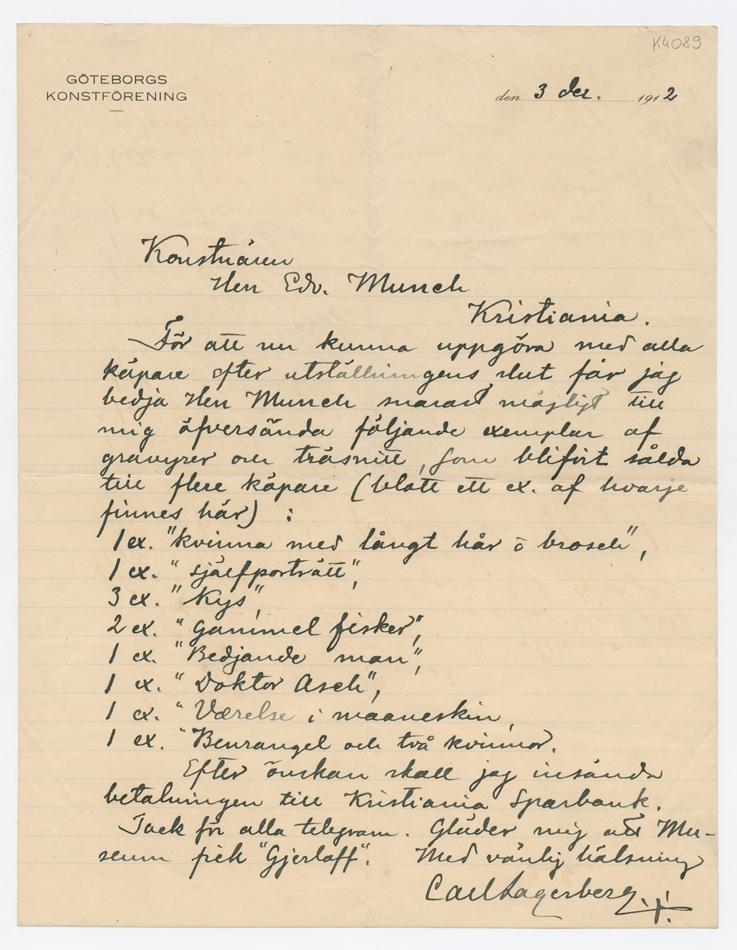 K4089
GÖTEBORGS
KONSTFÖRENING
den 3 dec. 1912
Konstnären
Herr Edv. Munch
Kristiania.
För att nu kunna uppgöra med alla
köpare efter utställningens slut får jag
bedja Herr Munch snarast möjligt till
mig öfversända följande exemplar af
gravyrer och träsnitt, som blifvit sålda
till flere köpare (blott ett ex. af hvarje
finnes här) :
1 ex. "kvinna med långt hår o brosch",
1 ex. "självporträtt",
3 ex. "Kys",
2 ex. "Gammel fisker",
1 ex. "Bedjande man",
1 ex. "Doktor Asch",
1 ex. "Værelse i maaneskin,
1 ex. "Benrangel och två kvinnor.
Efter önskan skall jag insända
betalningen till Kristiania Sparbank.
Tack för alla telegram. Gläder mig att Mu-
seum fick "Gjerløff". Med vänlig hälsning
Carl Lagerberg